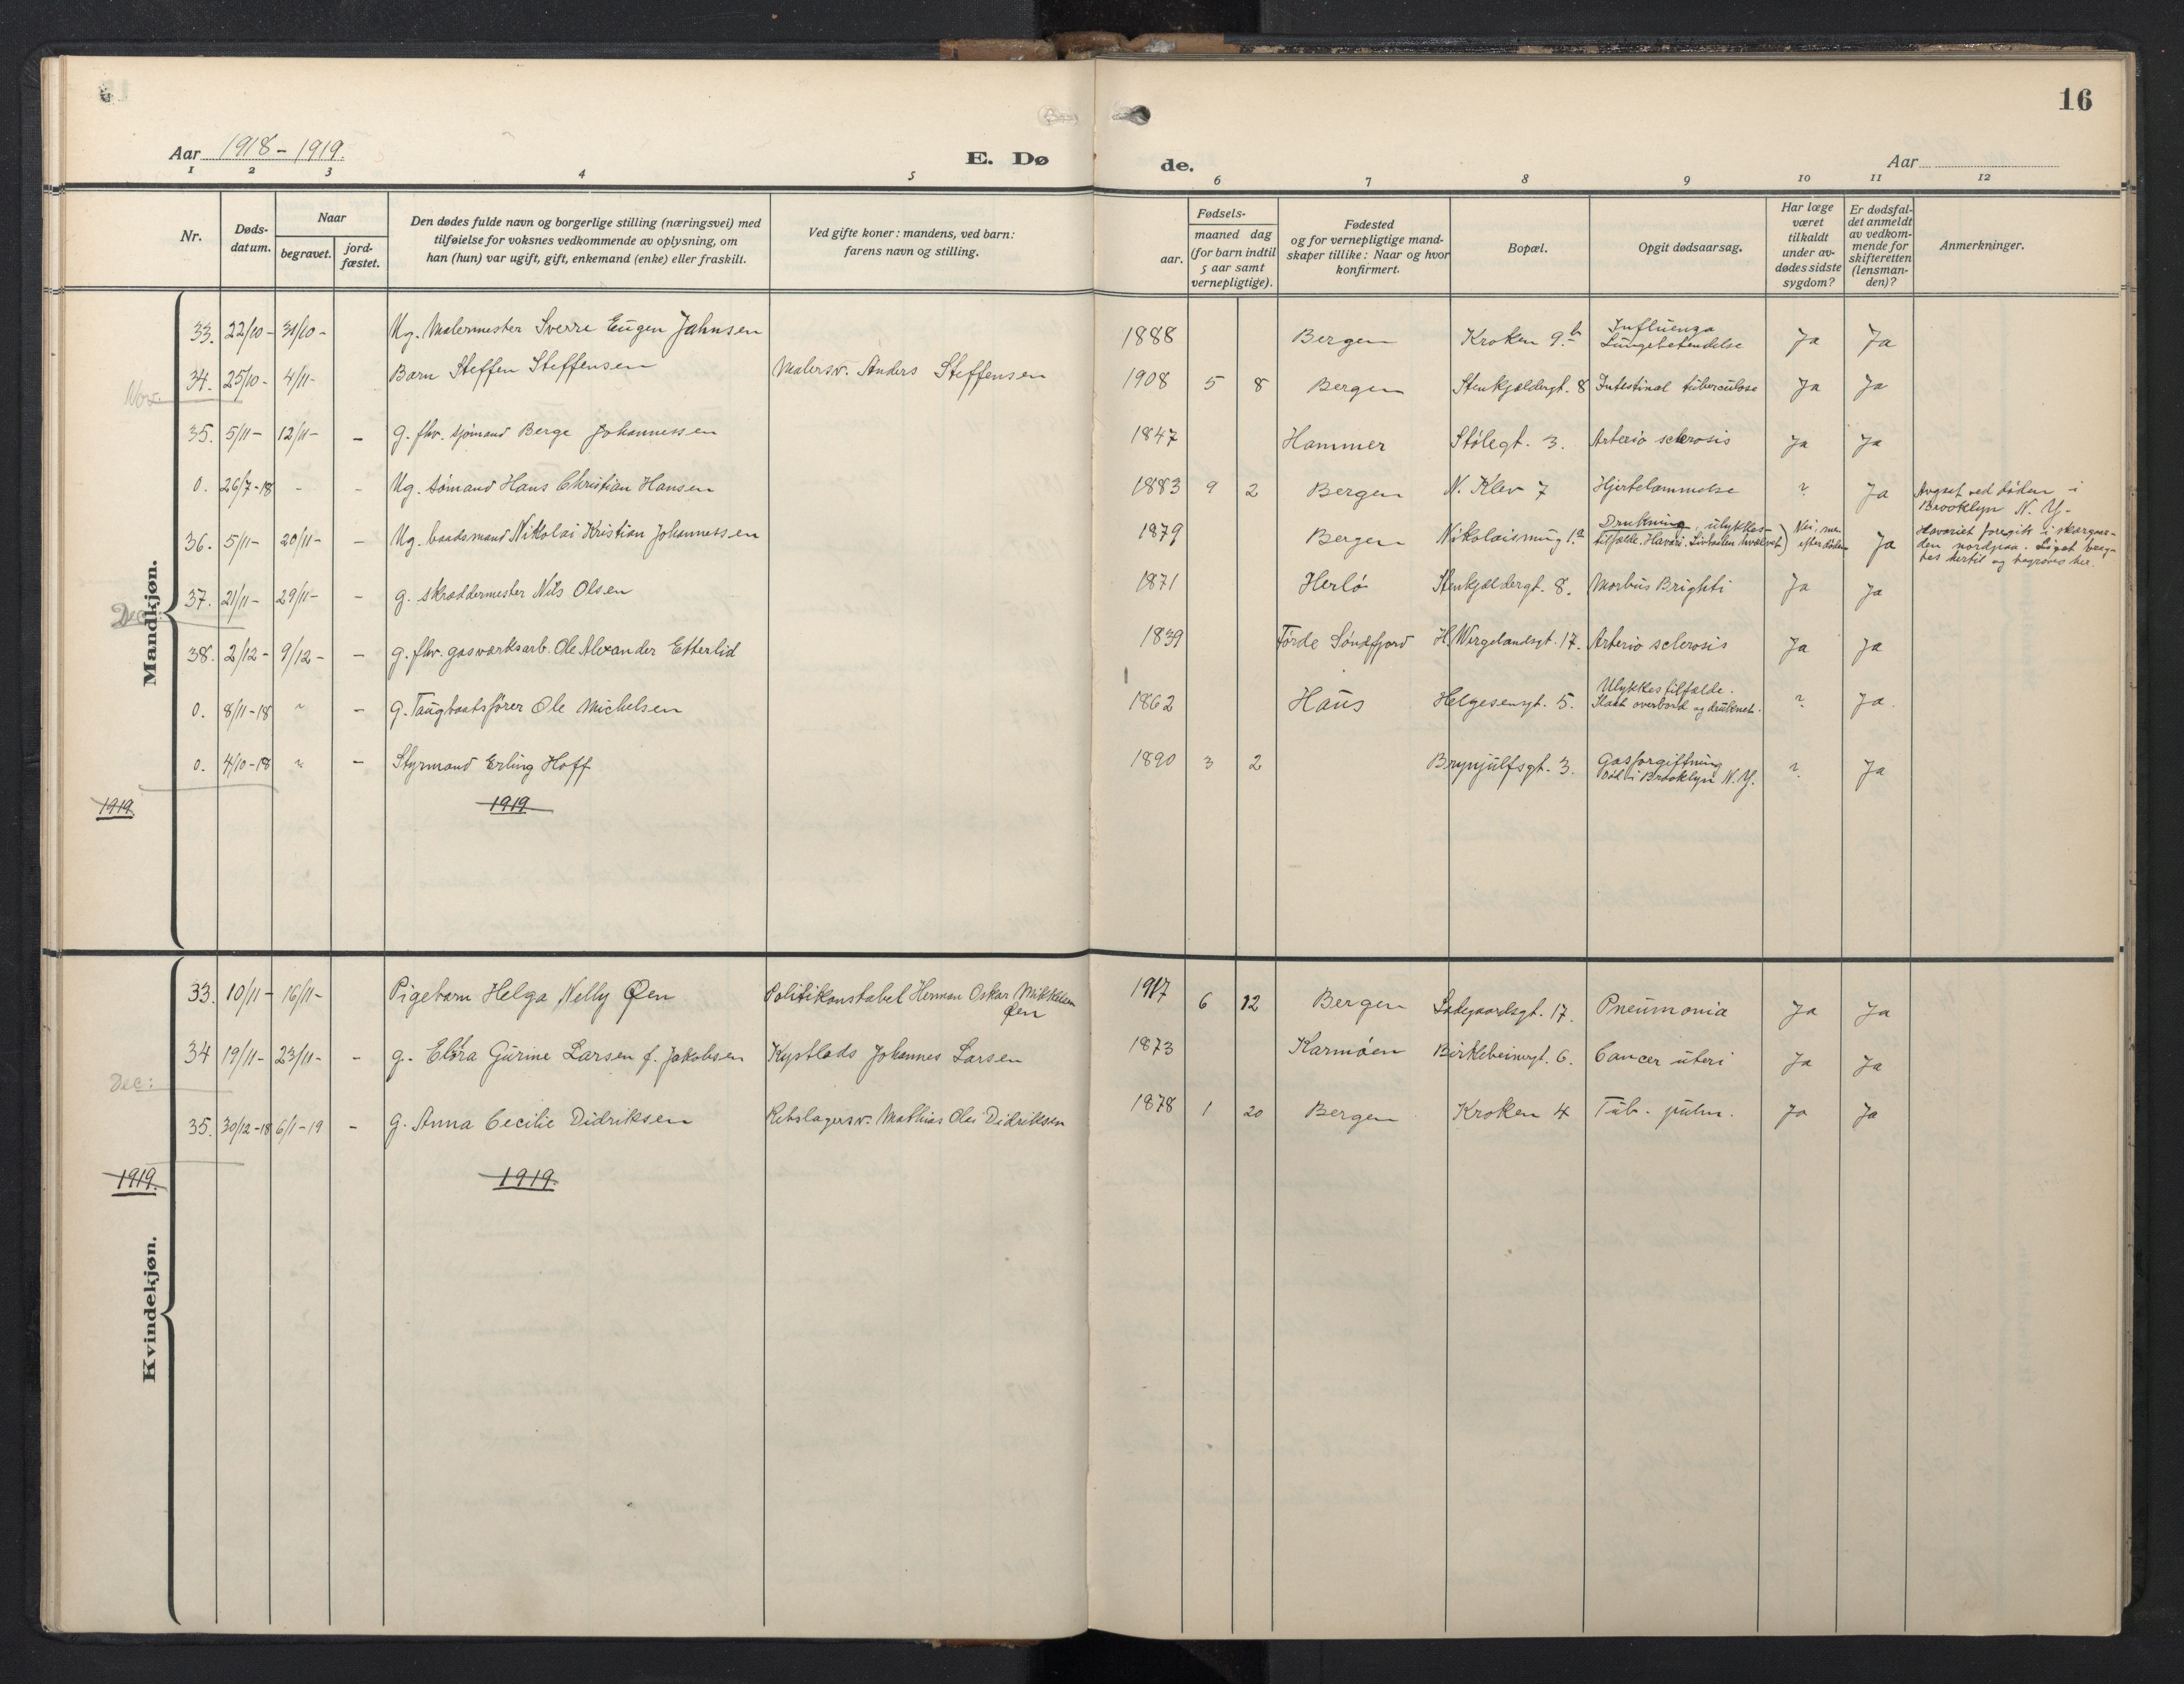 16
Aar 1918 - 1919.
E. Dø
de.
Aar
1 2 3 4 5 6 7 8 9 10 11 12
Nr.
Døds-
datum.
Naar
begravet.
jord-
fæstet.
Den dødes fulde navn og borgerlige stilling (næringsvei) med
tilføielse for voksnes vedkommende av oplysning, om
han (hun) var ugift, gift, enkemand (enke) eller fraskilt.
Ved gifte koner: mandens, ved barn:
farens navn og stilling.
Fødsels-
aar.
maaned dag
(for barn indtil
5 aar samt
vernepligtige).
Fødested
og for vernepligtige mand-
skaper tillike: Naar og hvor
konfirmert.
Bopæl.
Opgit dødsaarsag.
Har læge
været
tilkaldt
under av-
dødes sidste
sygdom?
Er dødsfal-
det anmeldt
av vedkom-
mende for
skifteretten
(lensman-
den)?
Anmerkninger.
Mandkjøn.
33. 22/10- 31/10- Ug. Malermester Sverre Eugen Jahnsen 1888 Bergen Kroken 9b Influenza Ja Ja
Lungebetendelse
34. 25/10- 4/11- Barn Steffen Steffensen Malersv. Anders Steffensen 1908 5 8 Bergen Stenkjeldergt. 8 Intestinal tuberculose Ja Ja
Nov.
35. 5/11- 12/11- - g. fhv. sjømand Berge Johannessen 1847 Hammer Stølegt. 3. Arterio sclerosis Ja Ja
0. 26/7-18 - - Ug. sømand Hans Christian Hansen 1883 9 2 Bergen N. Klev 7 Hjertelammelse ? Ja Avgaat ved døden i
Brooklyn N. Y.-
36. 5/11- 20/11- - Ug. baadsmand Nikolai Kristian Johannessen 1879 Bergen Nikolaismug 1.a Drukning, ulykkes-
tilfælde. Havari. Livbaaden hvælvet) Nei, men
efter døden Ja Havariet foregik i skærgaar-
den nordpaa. Liget brag-
tes hertil og begraves her.
37. 21/11- 29/11- - g. skræddermester Nils Olsen 1871 Herlø Stenkjeldergt. 8. Morbus Brighti Ja Ja
Dec.
38. 2/12- 9/12- - g. fhv. gasværksarb. Ole Alexander Etterlid 1839 Førde Søndfjord H. Wergelandsgt. 17. Arterio sclerosis Ja Ja
0. 8/11-18 " - g. Taugbaatsfører Ole Michelsen 1862 Haus Helgesensgt. 5. Ulykkestilfælde. ? Ja.
Faldt overbord og druknet.
0. 4/10-18 " - Styrmand Erling Hoff 1890 3 2 Brynjulfsgt. 3. Gasforgiftning ? Ja
Død i Brooklyn N. Y.
1919 1919
Kvindekjøn.
33. 10/11- 16/11- Pigebarn Helga Nelly Øen Politikonstabel Herman Oskar Mikkelsen
Øen 1917 6 12 Bergen Ladegaardsgt. 17. Pneumonia Ja Ja
34 19/11- 23/11- - g. Elora Gurine Larsen f. Jakobsen Kystlods Johannes Larsen 1873 Karmøen Birkebeinergt. 6. Cancer uteri Ja Ja
Dec:
35. 30/12-18 6/1-19 - g. Anna Cecilie Didriksen Rebslagersv. Mathias Olai Didriksen 1878 1 20 Bergen Kroken 4 Tub. pulm. Ja Ja
1919. 1919.